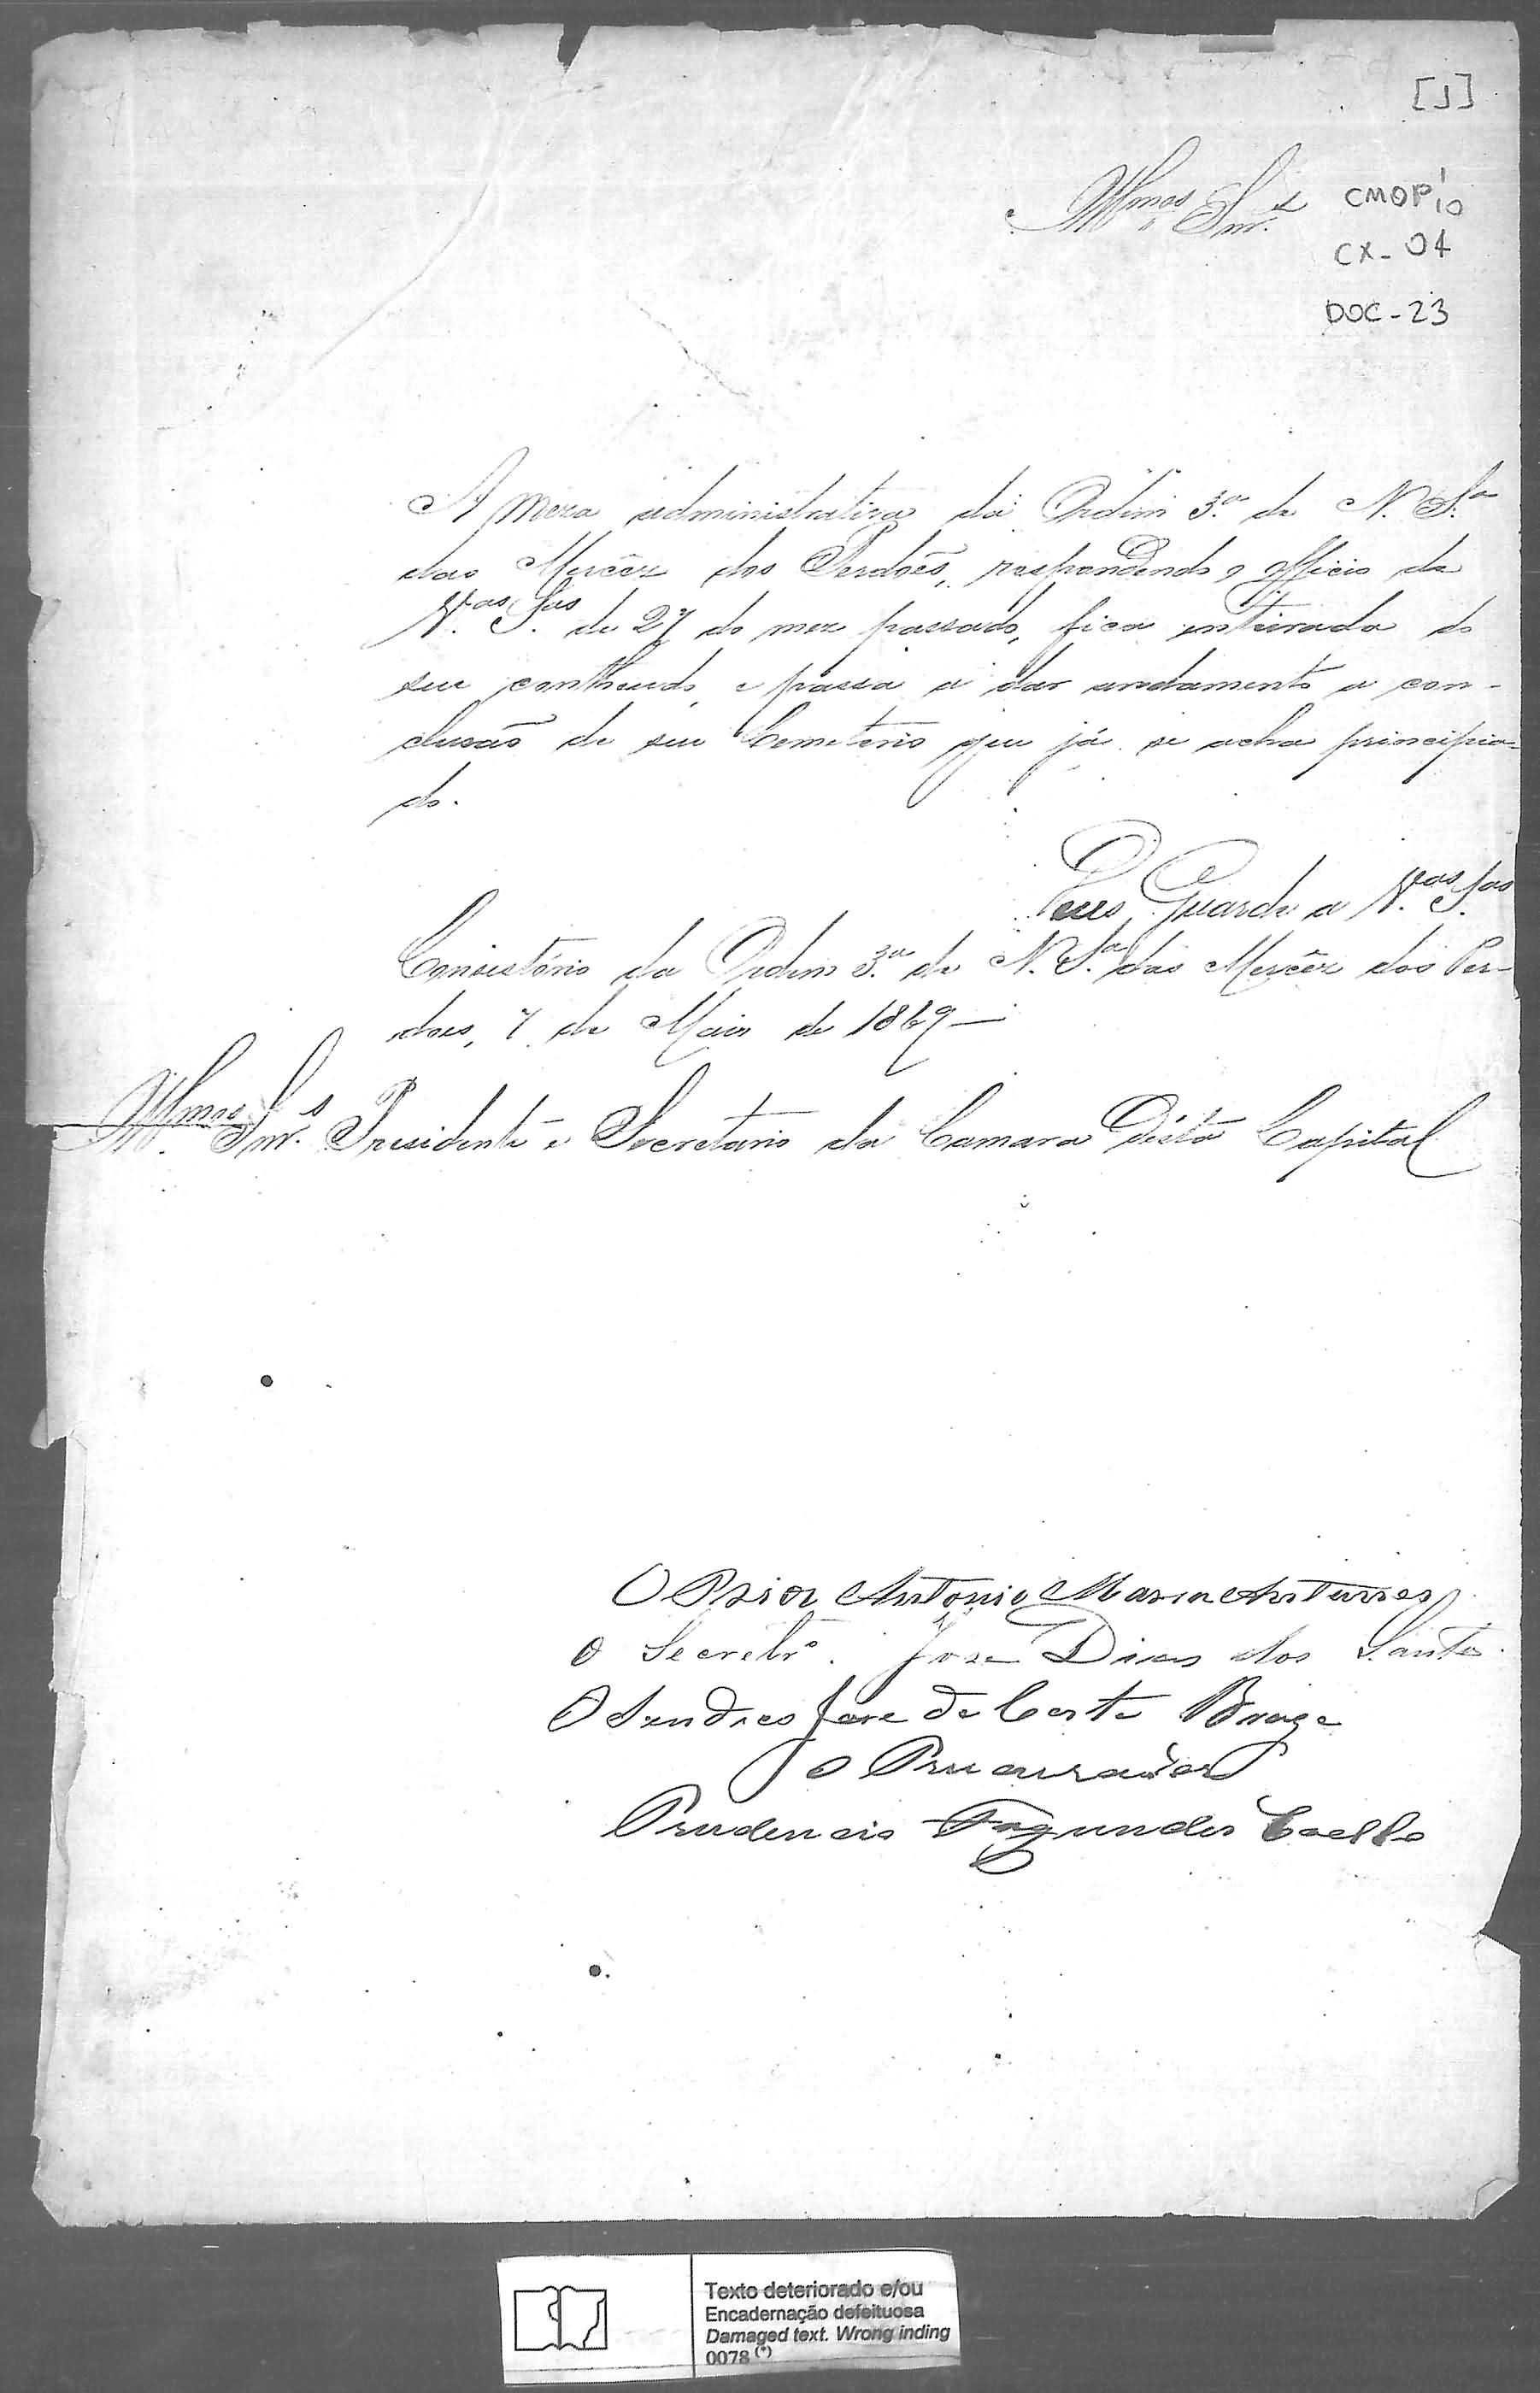 [1]
Illmos Snr.s
CMOP 1/10
CX-04
DOC-23
A Meza administrativa da Ordem 3.a de N. S.a
das Mercêz dos Perdoẽs, respondendo o officio de
V.as S.as de 27 do mez passado, fica inteirada do
seu contheudo, e passa a dar andamento a con-
clusaõ de seu Cemeterio que já se acha principia-
do.
Deus Guarde a V.as S.as
Consistório da Ordem 3.a de N. S.a das Mercêz dos Per-
does, 7 de Maio de 1869
Illmos Snr.s Presidente e Secretario da Camara Désta Capital
O Prior Antonio Maria Antunes
O Secretr.o Jose Dias dos Santos
O Sendico Jose da Costa Braga
O Prucurador
Prudencio Fagundes Coelho
Texto deteriorado e/ou
Encadernação defeituosa
Damaged text. Wrong inding
0078 (*)